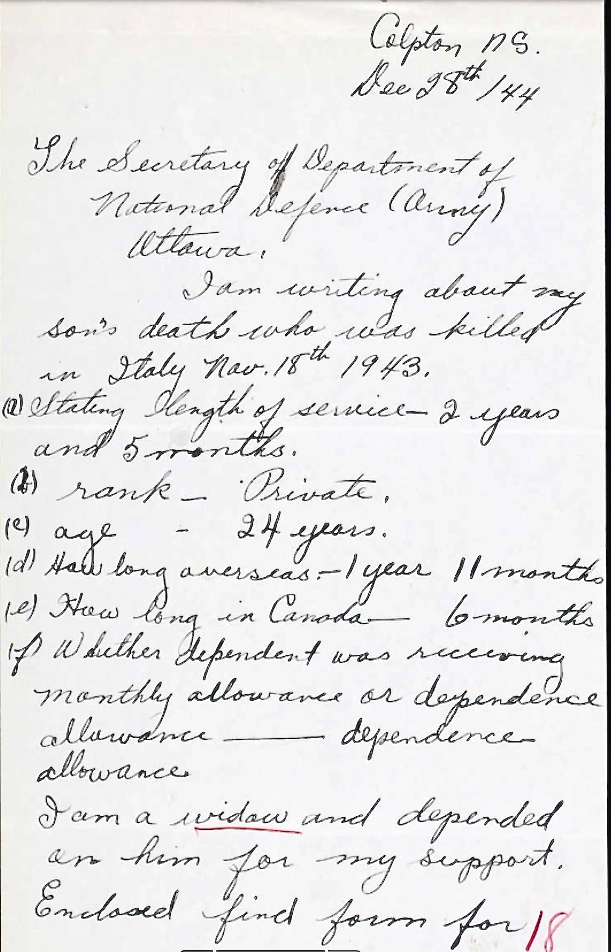 Colpton N.S.
Dec 28th/44
The Secretary of Department of
National Defence (Army)
Ottawa.
I am writing about my
son's death who was killed
in Italy Nov. 18th 1943.
(a) Stating length of service - 2 years
and 5 months.
(b) rank - Private.
(c) age - 24 years.
(d) How long overseas - 1 year 11 months
(e) How long in Canada - 6 months
(f) Whether dependent was receiving
monthly allowance or dependence
allowance — dependence
allowance
I am a widow and depended
on him for my support.
Enclosed find form for 18